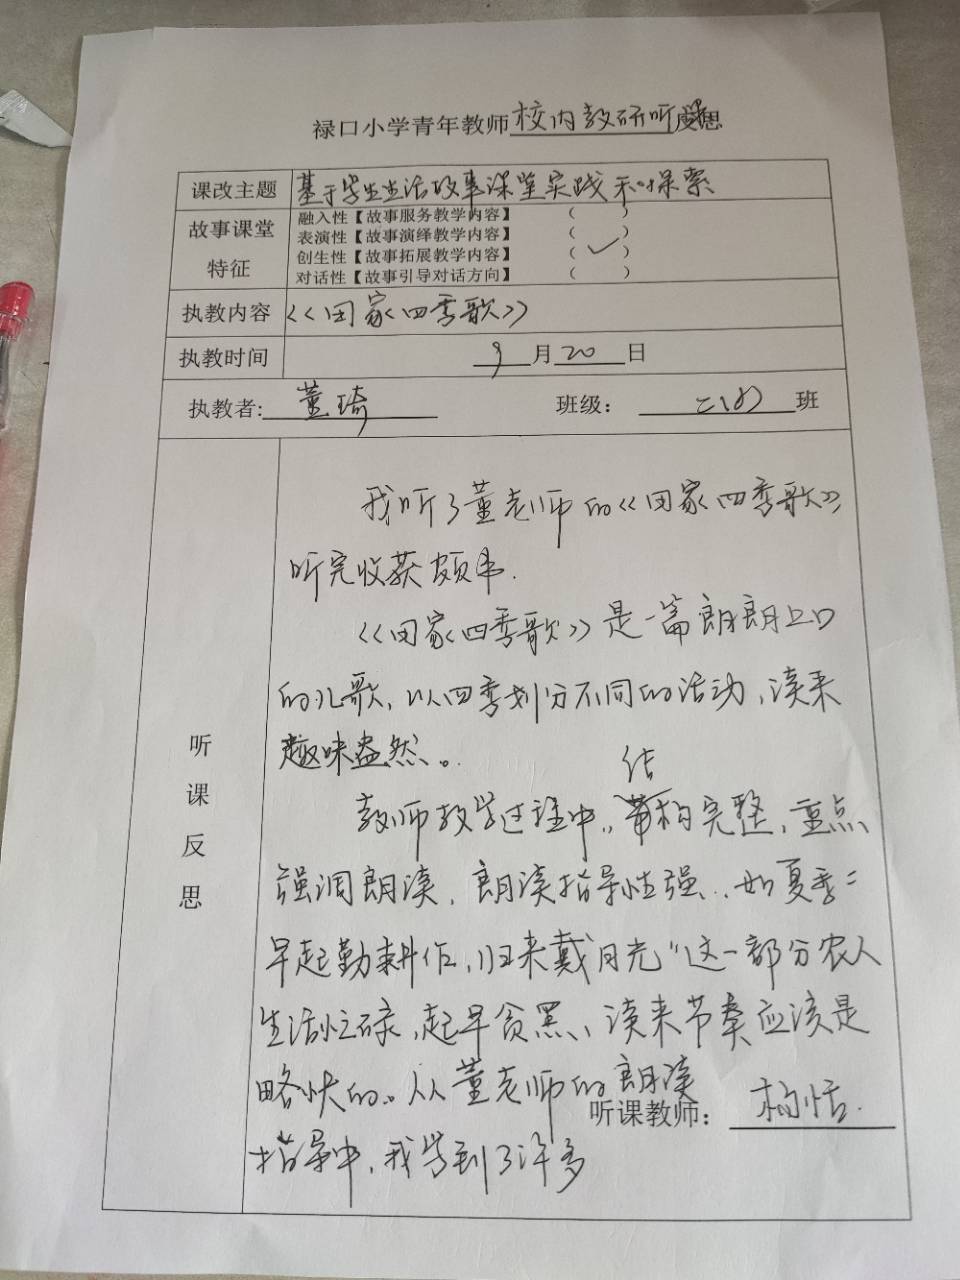 禄口小学青年教师校内教研听课反思
课改主题 基于学生生活故事课堂实践和探索
故事课堂特征
融入性【故事服务教学内容】 （ ）
表演性【故事演绎教学内容】 （ ）
创生性【故事拓展教学内容】 （ ✓ ）
对话性【故事引导对话方向】 （ ）
执教内容 《田家四季歌》
执教时间 9月20日
执教者: 董琦 班级： 班
听课反思
我听了董老师的《田家四季歌》
听完收获颇丰.
《田家四季歌》是一篇朗朗上口
的儿歌，以四季划分不同的活动，读来
趣味盎然。
教师教学过程中，结构完整，重点
强调朗读，朗读指导性强，如夏季“
早起勤耕作，归来戴月光”这一部分农人
生活忙碌，起早贪黑、读来节奏应该是
略快的。从董老师的朗读
指导中，我学到了许多
听课教师： 杨恬.